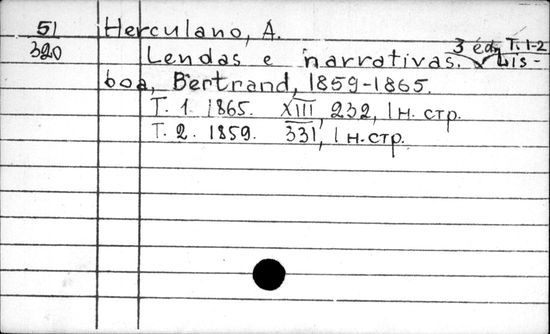 51 Herculano, A.
320 Lendas e narrativas. 3 éd. T. 1-2 Lis-
boa, Bertrand, 1859-1865.
T. 1. 1865. XIII, 232, 1 н. стр.
T. 2. 1859. 331, 1 н. стр.